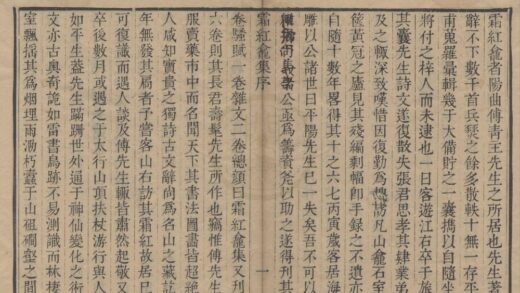 霜紅龕者陽曲傅青主先生之所居也先生著
辭不下數千首兵燹之餘多散軼十無一存平
甫蒐羅彙輯幾于大備貯之一囊攜以自隨坐
將付之梓人而未逮也一日客遊江右卒于旅
其囊先生詩文遂復散失張君思孝其肄業弟
及之輙深致嘆惜因復勤為搜凡山龕石室
篋黃冠之廬見其殘編剩幅即手錄之不遺亦
自隨十數年畧得其十之六七丙寅歲客居
雕以公諸世曰平陽先生已一失矣吾不可以
公亟為籌資斧以助之遂得刊其
霜紅龕集序 一
卷騷賦一卷雜文二卷總顏曰霜紅龕集又刋
六卷則其長君壽髦先生所作也竊惟傅先生
服賣藥市中而名聞天下其書法圖畫皆超絕
人咸知寶貴之獨詩古文辭尚為名山之藏
年無發其扃者予嘗客山右訪其霜紅故居
可復識而遇人談及傅先生輙皆肅然起敬又
卒後數月或遇之于太行山頂扶杖行與人
如平生葢先生蹣跚世外通于神仙變化之術
文亦古奧奇詭如雷書鳥跡不易測識而林棲
室飄揺其為烟埋雨泐朽蠹于山砠磵壑之間